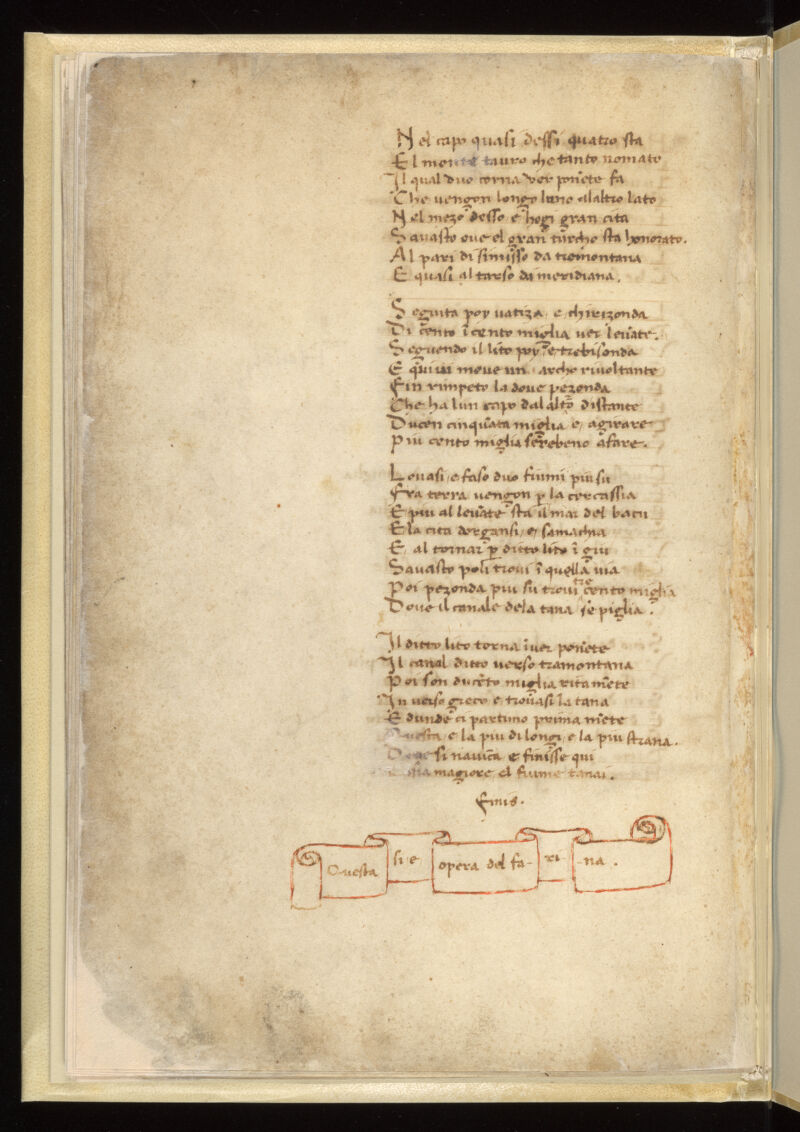 Nel capo quasi dessi quatro sta
El monte tauro che tanto nomato
Il qual duo corna ver ponẽte fa
Che uengon longo luno alaltro lato
Nel mezo desso e hogi gran cita
Sauasto oue el gran turcho sta honorato.
Al pari di simisso da tramontana
E quasi al tarso da meridiana.
Seguita poy uatiza e chirizonda
Di cẽnto ĩ cento miglia uer leuãte.
Seguendo il lito poy e trebisonda
E quiui moue un archo riuoltante
Fin rimpeto la doue pezonda
Che ha lun capo dal altro distante
Ducen cinquãta miglia e agirare
Piu cento miglia serebeno afare.
Louasi e faso duo fiumi piu su
Fra terra uengon p la cercassia
E piu al leuãte sta il mar del bacu
E la cita dorgansi e samachia
E al tornar p ditto lito ĩ giu
Sauasto poli troui ĩ quella uia
Poi pezonda piu su troui tre cento miglia
Doue il canale dela tana se piglia.
Il ditto lito torna ĩ uer ponẽte
Il canal ditto uerso tramontana
Poi son ducẽto miglia rita mẽte
In uerso greco e trouasi la tana
E dunde ci partimo prima mẽte
Questa e la piu di longi e la piu strana.
si nauica e finisse qui
magiore el fiume tanai.
Finis.
Questa si e opera del fa-ri-na.